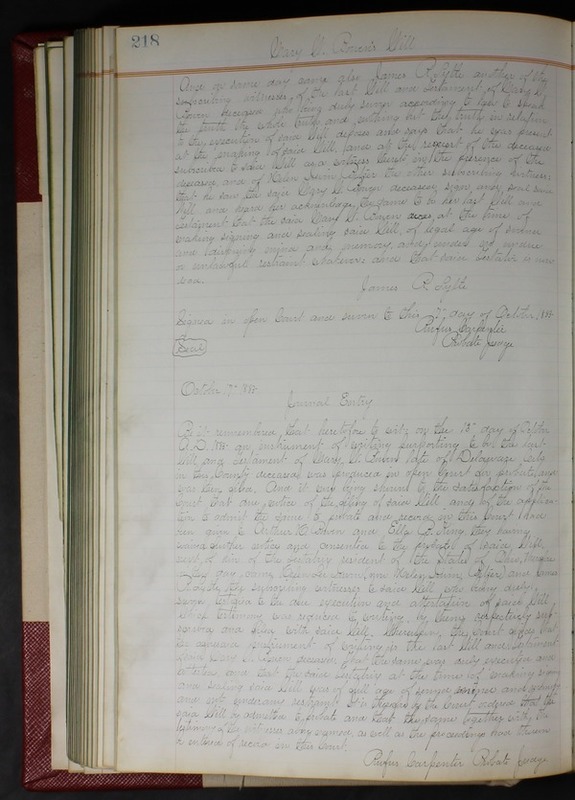 218
Mary A. Bowen's Will
And on same day came also James R. Lytle another of the
subscribing witnesses of the last Will and Testament of Mary A.
Bowen deceased who being duly sworn according to law to speak
the truth the whole truth and nothing but the truth in relation
to the execution of said Will deposes and says that he was present
at the making of said Will, and at the request of the deceased
subscribed to said Will as a witness thereto in the presence of the
deceased, and of the other subscribing witness;
that he saw the said Mary A. Bowen deceased sign and seal said
Will and heard her acknowledge the same to be her last Will and
Testament that the said Mary A. Bowen was, at the time of
making signing and sealing said Will, of legal age of sound
and disposing mind and memory, and under no undue
or unlawful restraint whatever; and that said testator is now
dead.
James R. Lytle
Signed in open Court and sworn to this 7" day of October
Rufus Carpenter
Probate Judge
Seal
October 7"
Journal Entry
Be it remembered that heretofore to wit; on the day of October
A.D. an instrument of writing purporting to be the last
Will and Testament of Mary A. Bowen late of Delaware City
in this County deceased was produced in open Court for probate, and
And it now being shown to the satisfaction of the
Court that due notice of the filing of said Will and of the applica-
tion to admit the same to probate and record in this Court had
been given to Arthur Bowen and Ella King they having
waived further notice and consented to the probate of said Will,
next of kin of the testatrix resident of the State of Ohio,
this day came
Lytle, the subscribing witnesses to said Will who being duly
sworn testified to the due execution and attestation of said Will
which testimony was reduced to writing, by them respectively sub-
scribed and filed with said Will. Whereupon, the Court finds that
the aforesaid instrument of writing is the last Will and Testament
Mary A. Bowen deceased, that the same was duly executed and
attested, and that the said testatrix at the time of making signing
and sealing said Will was of full age of sound mind and memory
and not under any restraint. It is therefore by the Court ordered that the
said Will be admitted to probate and that the same together with the
testimony of the witnesses above named, as well as the proceedings had thereon
be entered of record in this Court.
Rufus Carpenter Probate Judge